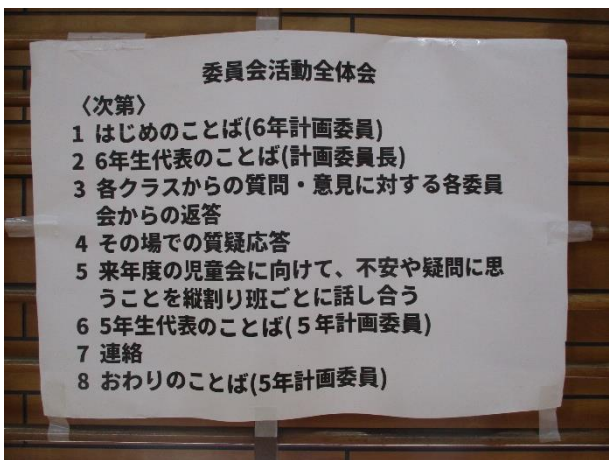 委員会活動全体会
〈次第〉
1 はじめのことば(6年計画委員)
2 6年生代表のことば(計画委員長)
3 各クラスからの質問・意見に対する各委員
会からの返答
4 その場での質疑応答
5 来年度の児童会に向けて、不安や疑問に思
うことを縦割り班ごとに話し合う
6 5年生代表のことば(５年計画委員)
7 連絡
8 おわりのことば(5年計画委員)